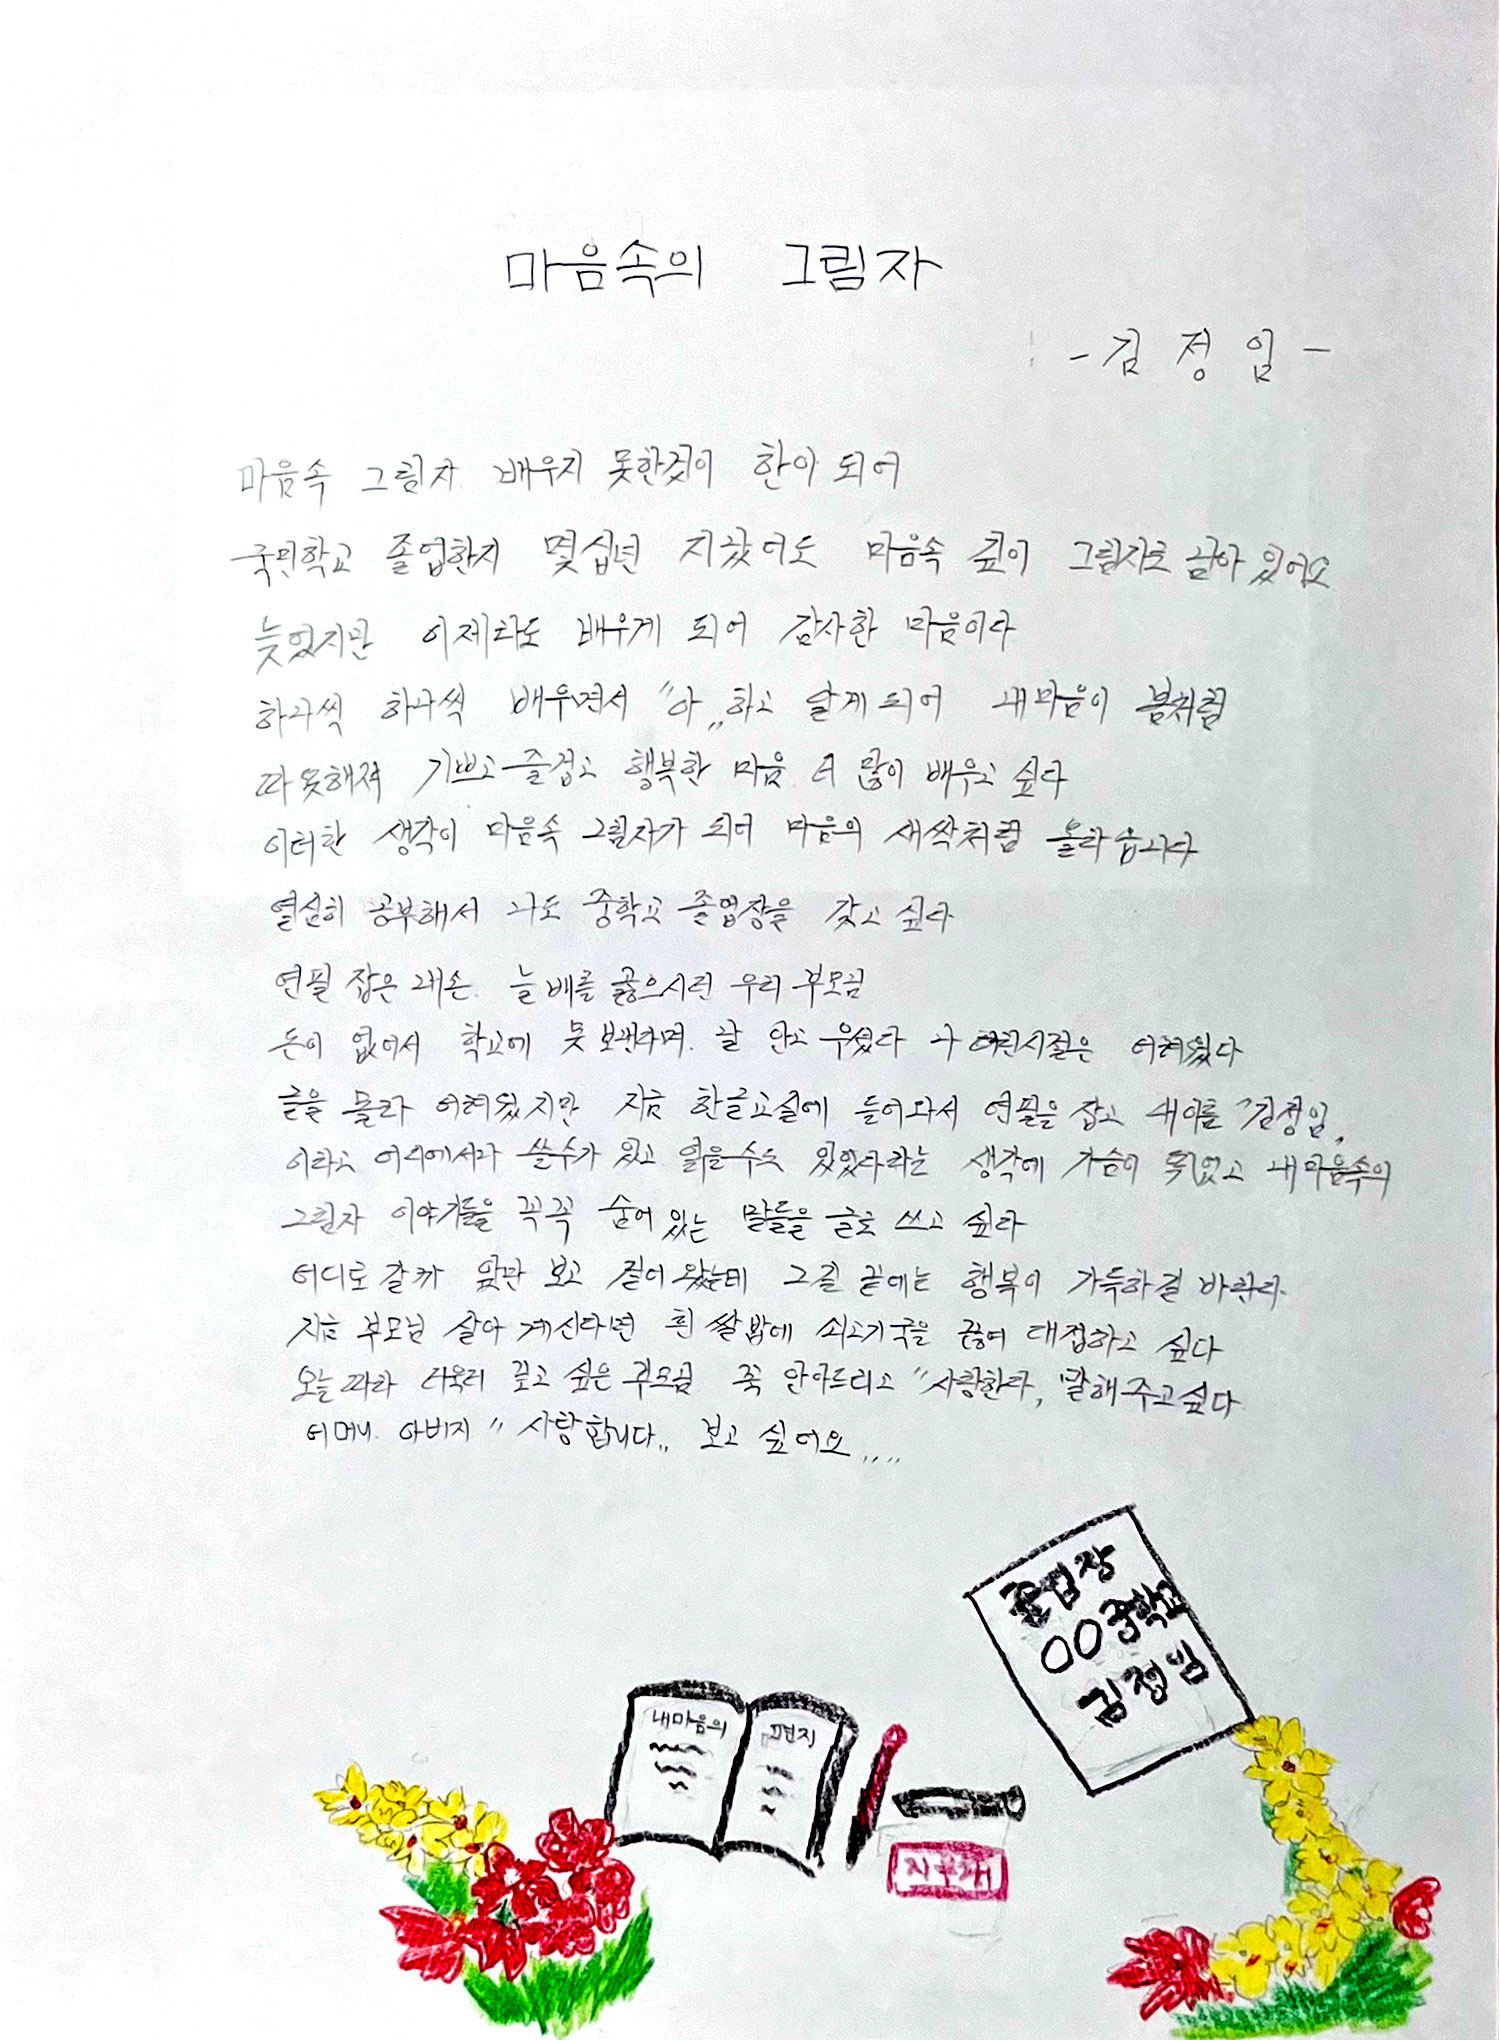 마음속의 그림자
- 김 정 임 -
마음속 그림자 배우지 못한것이 한이 되어
국민학교 졸업한지 몇십년 지났어도 마음속 깊이 그림자로 남아 있어요
늦었지만 이제라도 배우게 되어 감사한 마음이다
하나씩 하나씩 배우면서 "아,, 하고 알게 되어 내마음이 봄처럼
따뜻해져 기쁘고 즐겁고 행복한 마음 더 많이 배우고 싶다
이러한 생각이 마음속 그림자가 되어 마음의 새싹처럼 올라옵니다
열심히 공부해서 나도 중학교 졸업장을 갖고 싶다
연필 잡은 내손. 늘 배를 굶으시던 우리 부모님
돈이 없어서 학교에 못 보낸다며. 날 안고 우셨다 나 어린시절은 어려웠다
글을 몰라 어려웠지만 지금 한글교실에 들어와서 연필을 잡고 내이름 "김정임,
이라고 어디에서나 쓸수가 있고 읽을수도 있었다라는 생각에 가슴이 내마음속의
그림자 이야기들을 꼭꼭 숨어 있는 말들을 글로 쓰고 싶다
어디로 갈까 앞만 보고 걸어 왔는데 그길 끝에는 행복이 가득하길 바란다.
지금 부모님 살아 계신다면 흰 쌀밥에 쇠고기국을 끓여 대접하고 싶다
오늘따라 더욱더 보고 싶은 부모님 꼭 안아드리고 "사랑한다, 말해주고싶다
어머니. 아버지 "사랑합니다,, 보고 싶어요,,,,
졸업장
OO중학교
김정임
내마음의 편지
지우개